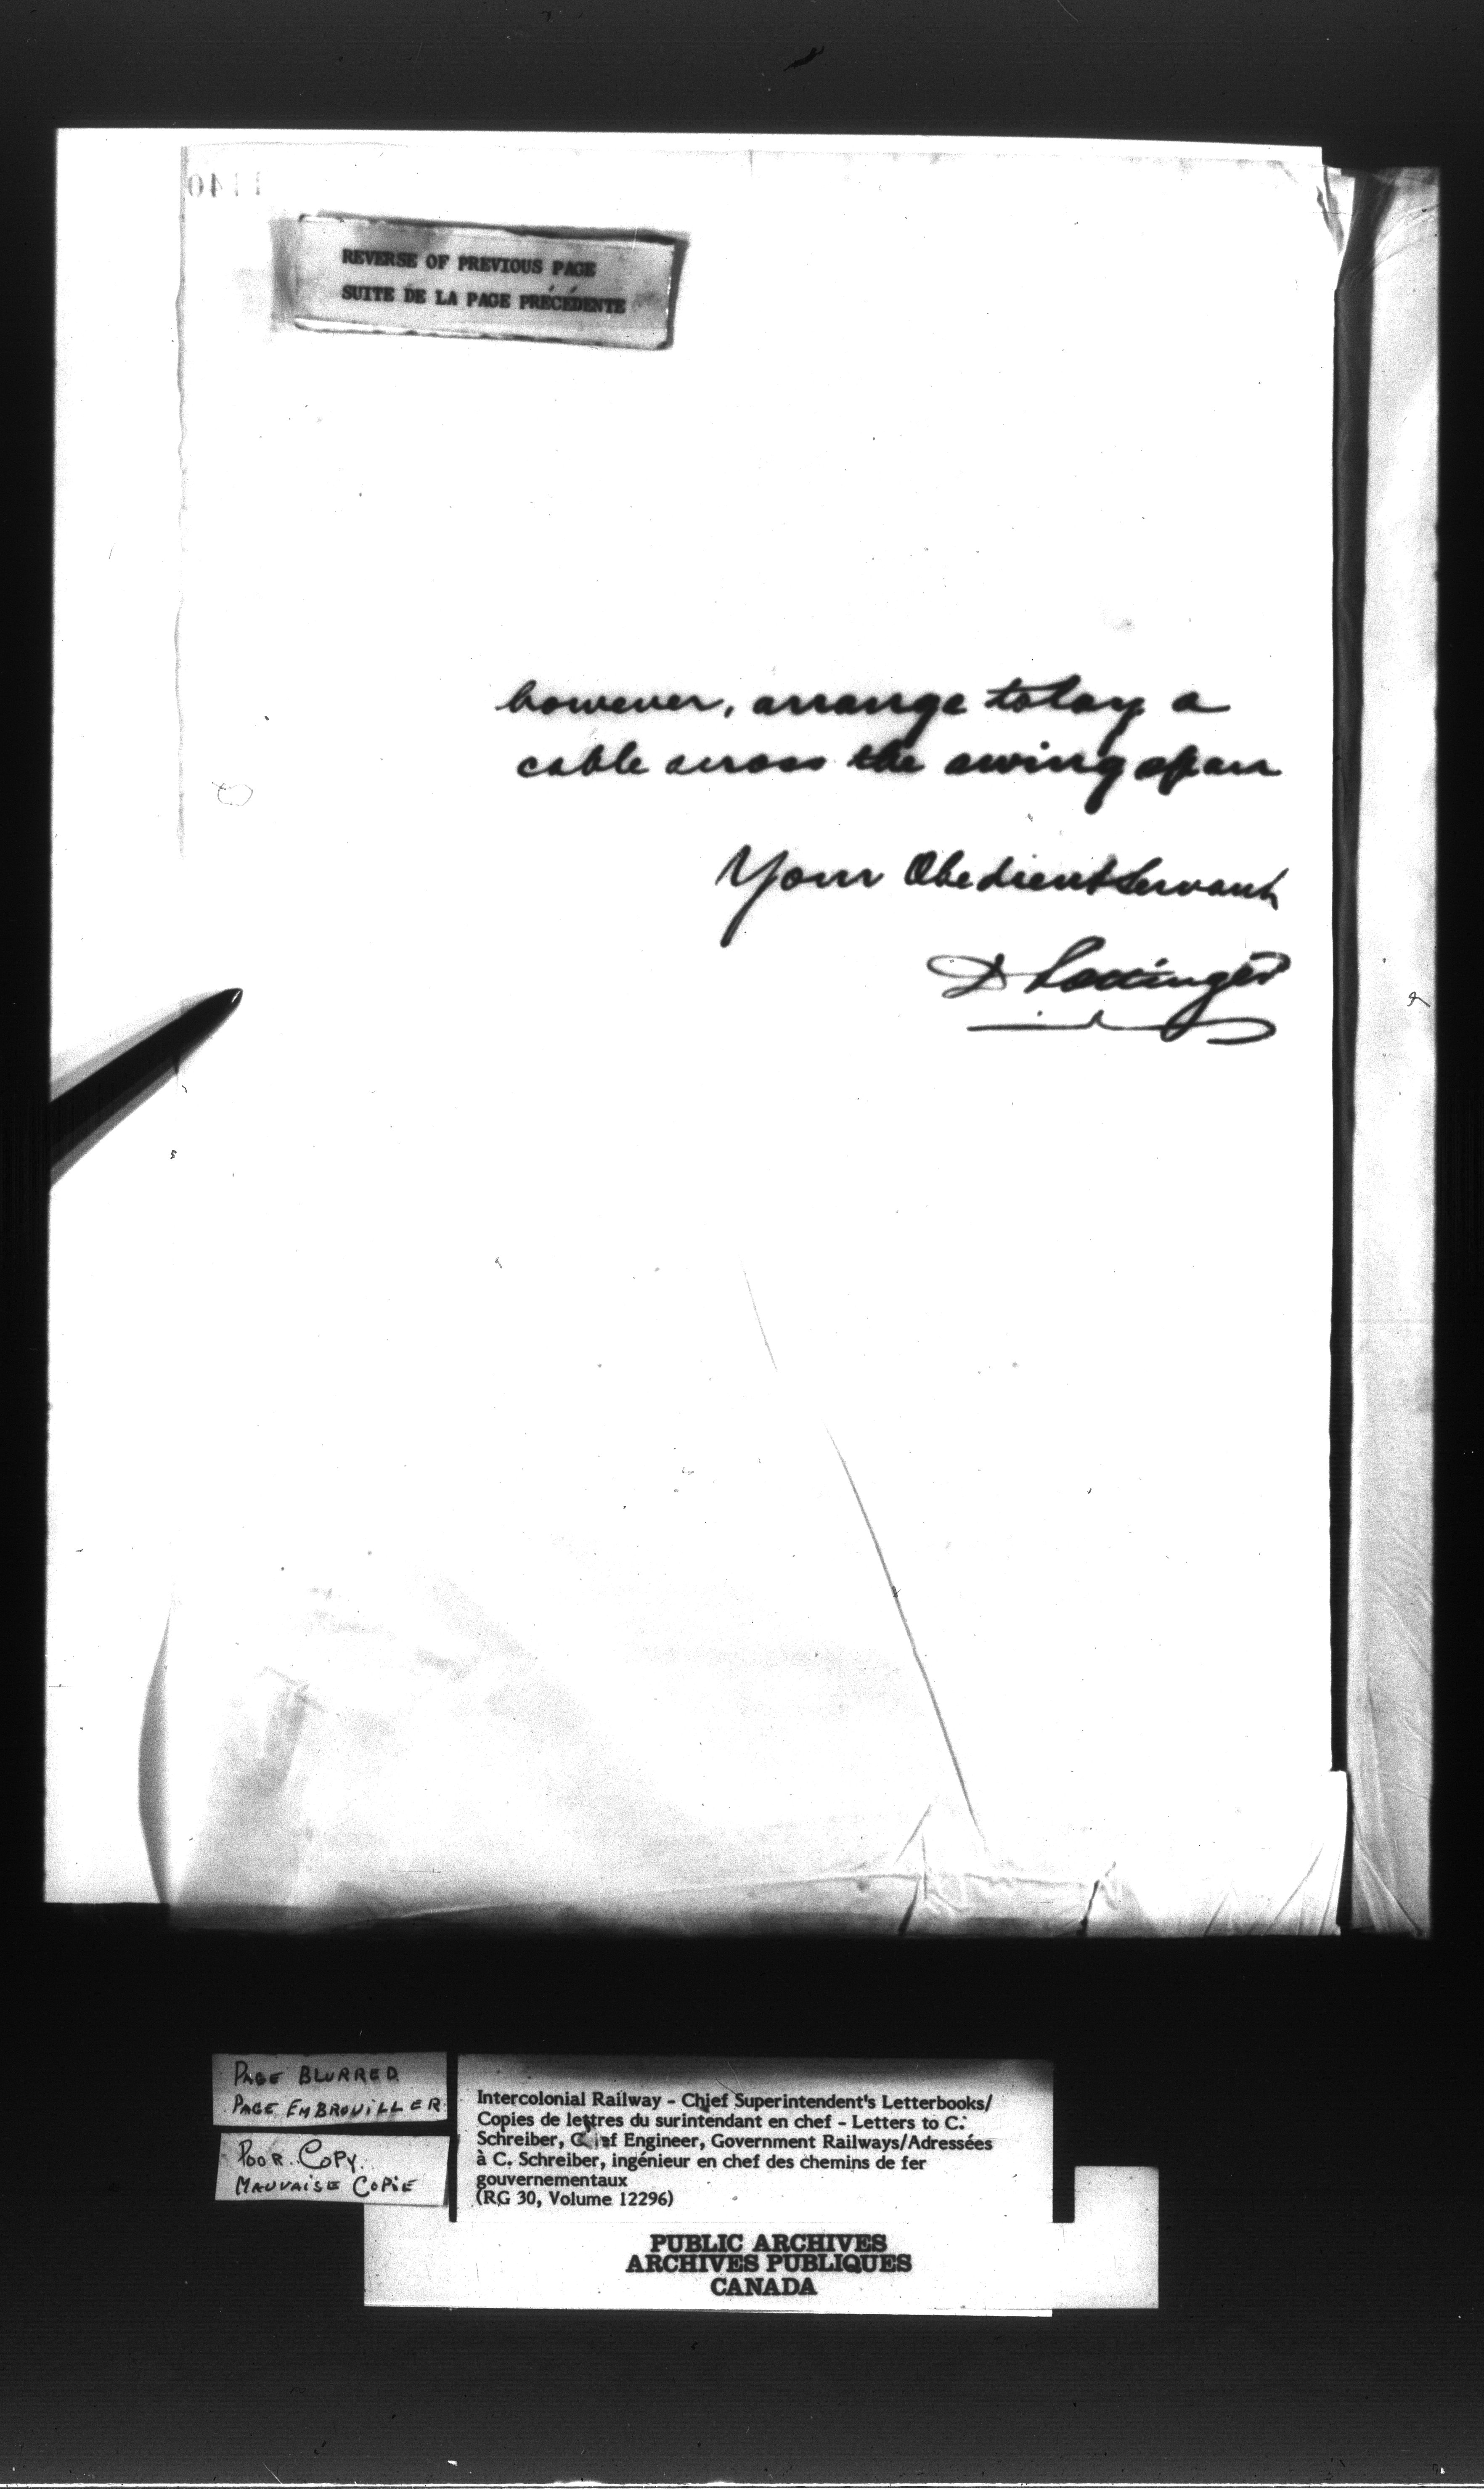 1140
REVERSE OF PREVIOUS PAGE
SUITE DE LA PAGE PRÉCÉDENTE
however, arrange to lay a
cable across the swing span
Your Obedient Servant
D Pottinger
PAGE BLURRED
PAGE EMBROUILLER
POOR COPY
MAUVAISE COPIE
Intercolonial Railway - Chief Superintendent's Letterbooks/
Copies de lettres du surintendant en chef - Letters to C.
Schreiber, Chief Engineer, Government Railways/Adressées
à C. Schreiber, ingénieur en chef des chemins de fer
gouvernementaux
(RG 30, Volume 12296)
PUBLIC ARCHIVES
ARCHIVES PUBLIQUES
CANADA